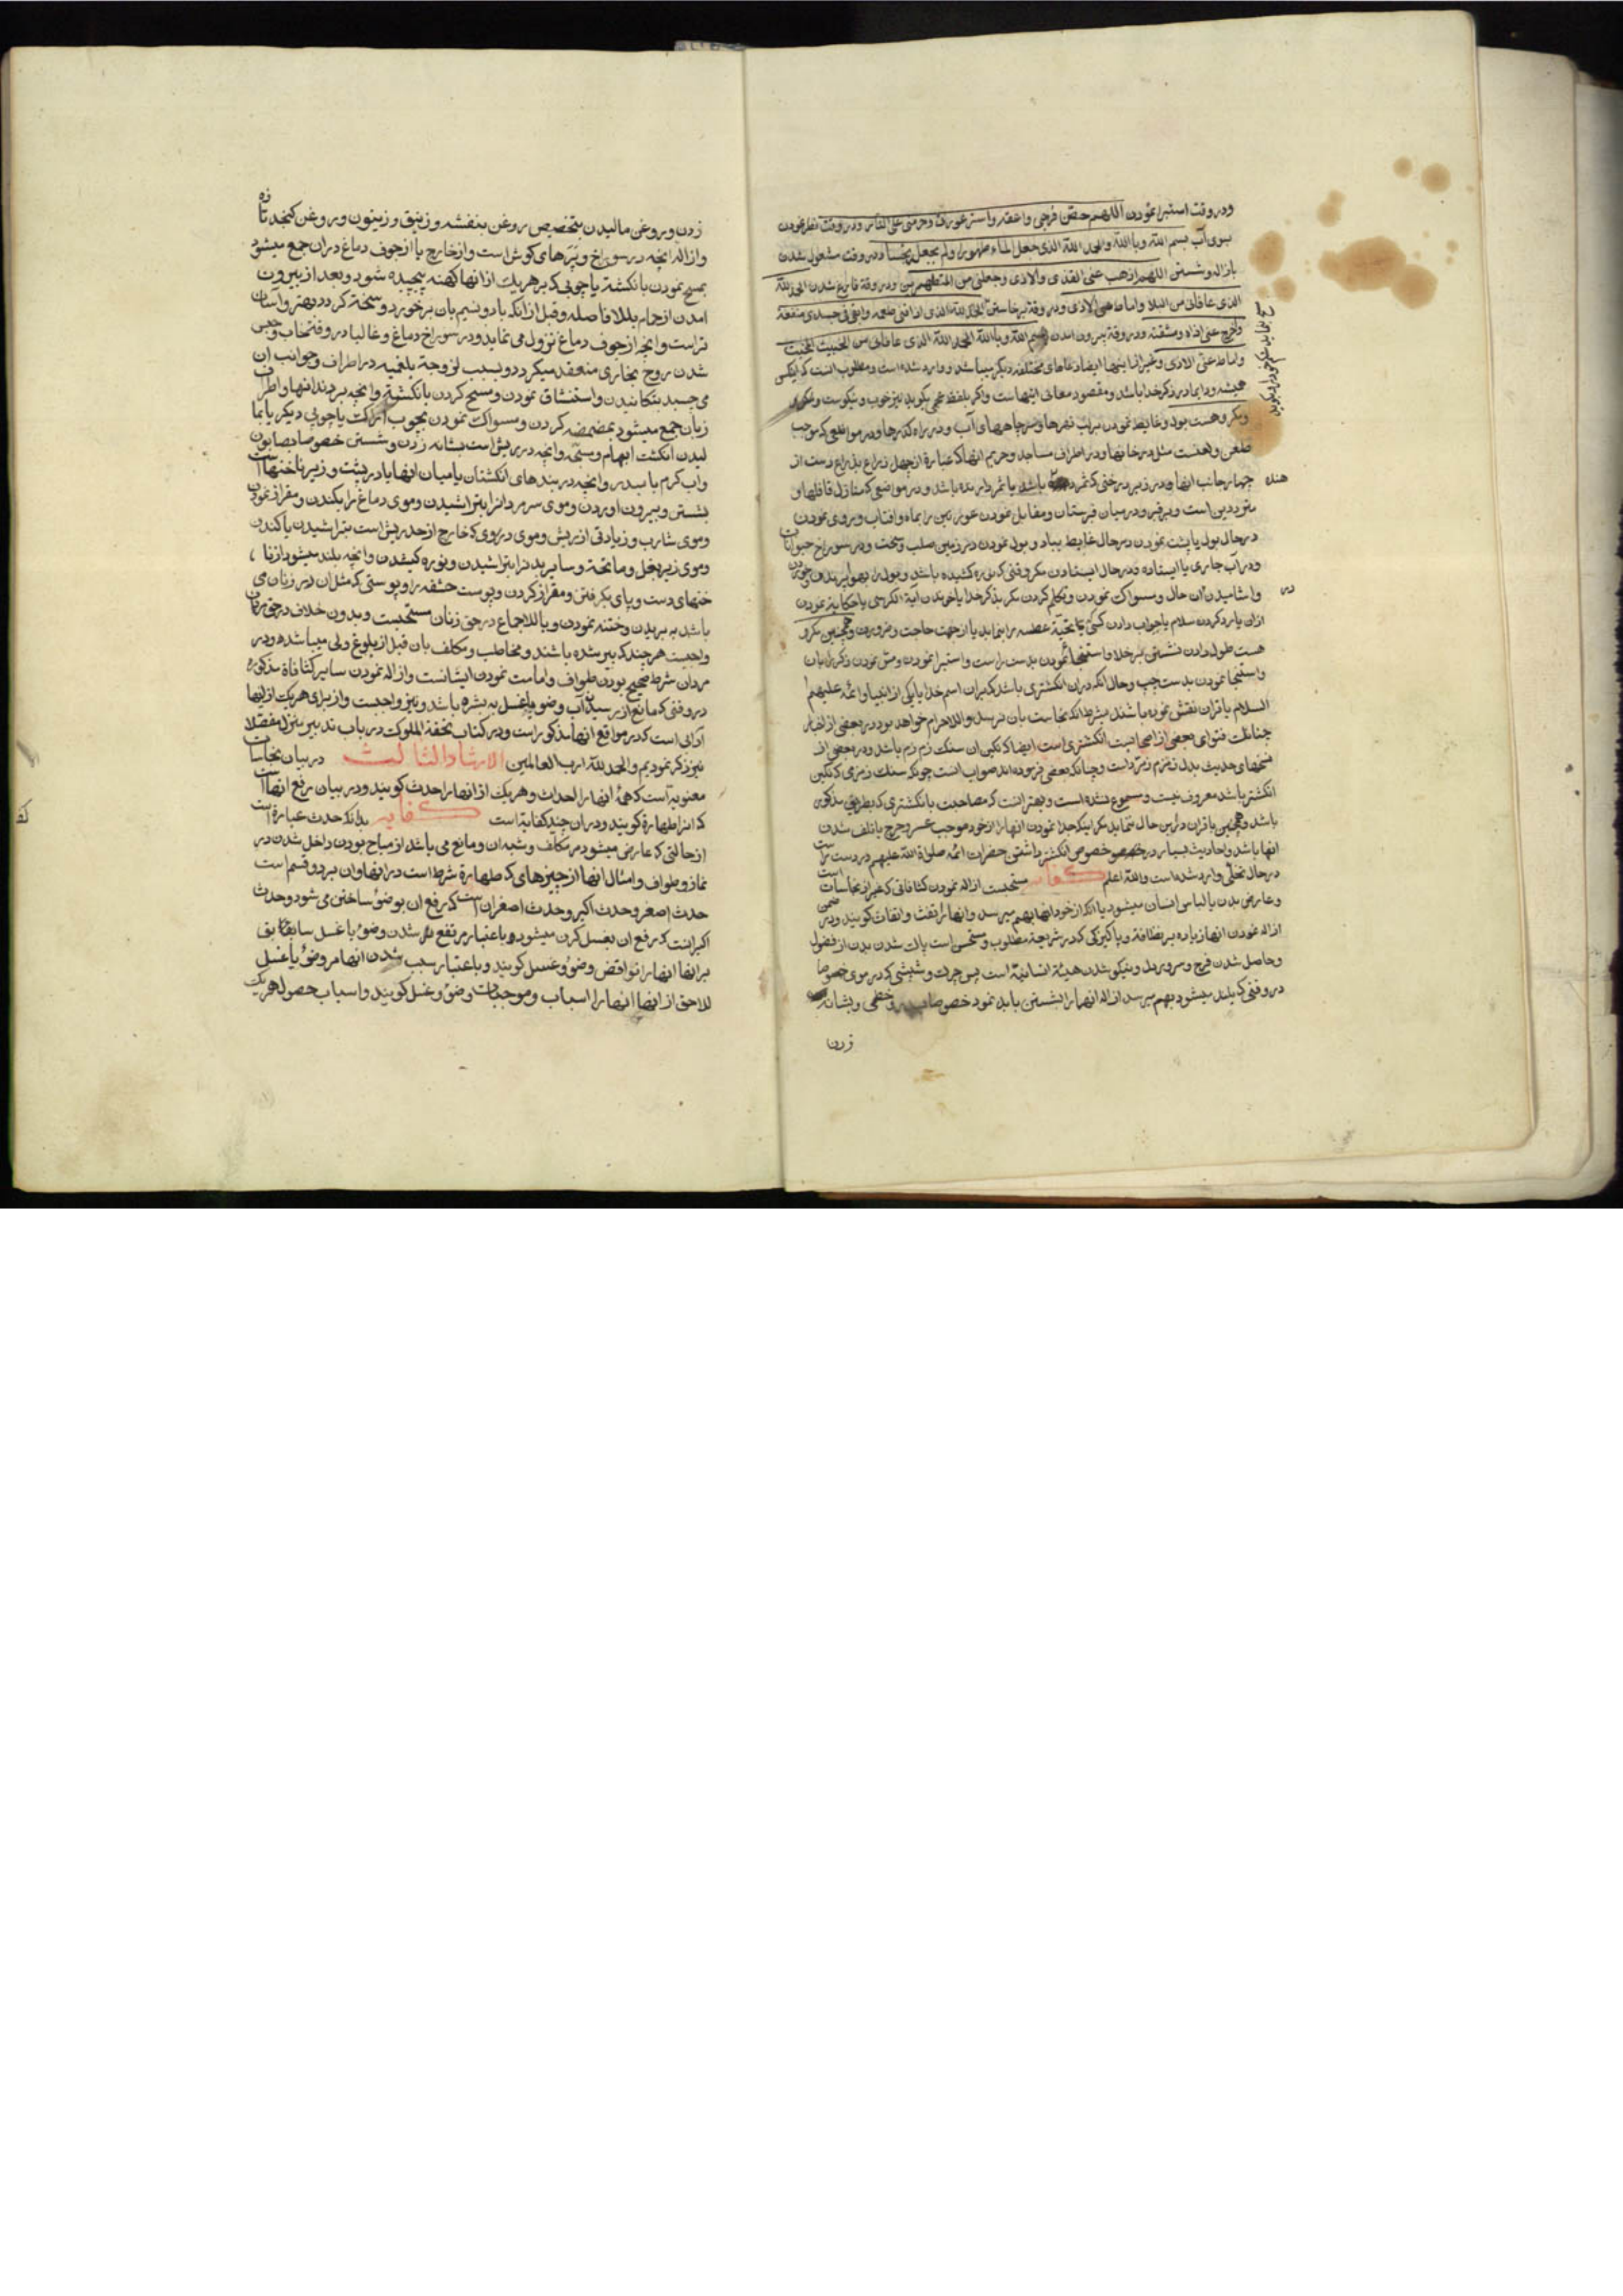 ودر وقت استبرا نمودن اللهم حصّن فرجی واعفه واستر عورتی وحرمنی علی النار ودر وقت نظر نمودن
بسوی آب بسم الله وبالله والحمد لله الذی جعل الماء طهورا ولم یجعله نجسا ودر وقت مشغول شدن
بازاله وشستن اللهم اذهب عنی القذی والاذی وجعلنی من المتطهرین ودر وقة فارغ شدن الحمد لله
الذی عافانی من البلاء واماط عنی الاذی ودر وقة برخاستن الحمد لله الذی اذاقنی طعمه وابقی فی جسدی منفعة
واخرج عنی اذاه ومشقته ودر وقة بیرون امدن بسم الله وبالله الحمد لله الذی عافانی من الخبیث المخبث
واماط عنّی الاذی وغیر از اینها ایضا دعاهای مختلفه دیکر میباشد و وارد شده است ومطلوب انست که ایکس
همیشه ودایما در ذکر خدا باشد ومقصود معانی اینهاست واکر بلفظ عجمی بکوید نیز خوب ونیکوست
ومکروهست بول وغایط نمودن بر لب نهرها وسر چاههای آب ودر راه کذرها ودر مواضعی که موجب
طعن ولعنت مثل در خانها ودر اطراف مساجد وحریم انها که عبارة از چهل ذراع بذراع دست از
چهار جانب انها ودر زیر درختی که ثمر باشد یا ثمر دار بده باشد ودر مواضعی که منازل قافلها و
مترددین است وبر قبر ودر میان قبرستان ومقابل نمودن عورتین را بماه وافتاب وروی نمودن
در حال بول یا پشت نمودن در حال غایط بباد وبول نمودن در زمین صلب وسخت ودر سوراخ حیوانات
ودر آب جاری یا ایستاده ودر حال ایستادن مکر وقتی که نوره کشیده باشد وبول را بهوا پریدن وخوردن
واشامیدن در ان حال ومسواک نمودن وتکلم کردن مکر بذکر خدا یا خواندن آیة الکرسی یا حکایة نمودن
اذان یا رد کردن سلام یا جواب دادن کسی تحیّة عطسه را بنماید یا از جهت حاجت وضرورت وهمچنین مکرو
هست طول دادن نشستن بر خلا واستنجا نمودن بدست راست واستبرا نمودن ومس نمودن ذکر را بان
واستنجا نمودن بدست چپ وحال انکه در ان انکشتری باشد که بران اسم خدا یا یکی از انبیا وائمه علیهم
السلام یا قران نقش نموده باشند بشرط انکه نجاست بان نرسد والا حرام خواهد بود در بعضی از اخبار
انکشتر باشد معروف نیست ومسموع نشده است وبهتر انست که مصاحبت با انکشتری که بطریق مذکور
باشد وهمچنین با قران در این حال ننماید مکر اینکه جدا نمودن انها را از خود موجب عسر وحرج یا تلف شدن
انها باشد واحادیث بسیار در خصوص انکشتر داشتن حضرات ائمه صلواة الله علیهم در دست راست
در حال تخلّی وارد شده است والله اعلم کفایه مستحبست ازاله نمودن کثافاتی که غیر از نجاسات است
وعارض بدن یا لباس انسان میشود یا انکه از خود انها بهم میرسد وانها را تفث واتفاث کویند ودر ضمن
ازاله نمودن انها زیاده بر نظافة وپاکیزکی که در شریعة مطلوب ومستحسن است پاک شدن بدن از فضول
وحاصل شدن فرح وسرور دل ونیکو شدن هیئة انسانیّة است پس چرک وشپشی که در موی خصوصا
در وقتی که بلند میشود بهم میرسد ازاله انها را بشستن باید نمود خصوصا بسدر وخطمی وبشانه
زدن
زدن وبروغن مالیدن بتخصیص روغن بنفشه وزنبق وزیتون وروغن کنجد تازه
وازاله انچه در سوراخ وپرهای کوش است واز خارج یا از جوف دماغ دران جمع میشود
بمسح نمودن بانکشت یا چوبی که بر هر یک از انها کهنه پیچیده شود وبعد از بیرون
امدن از حمام بلا فاصله وقبل از انکه باد ونسیم بان برخورد وسخت کردد بهتر واسان
تر است وانچه از جوف دماغ نزول می نماید ودر سوراخ دماغ وغالبا در وقت خواب
شدن روح بخاری منعقد میکردد وبسبب لزوجة بلغمیه در اطراف وجوانب ان
می چسبد بتکانیدن واستنشاق نمودن ومسح کردن بانکشت وانچه بر دندانها واطراف
زبان جمع میشود بمضمضه کردن ومسواک نمودن بچوب اراکت یا چوبی دیکر یا بما
لیدن انکشت ابهام وسبّحه وانچه در ریش است بشانه زدن وشستن خصوصا بصابون
واب کرم یا بسدر وانچه در بندهای انکشتان یا میان انها یا در پشت وزیر ناخنها است
بشستن وبیرون اوردن وموی سر مردان را بتراشیدن وموی دماغ را بکندن ومقراض نمودن
وموی شارب وزیادتی از ریش وموی در روی که خارج از حد ریش است بتراشیدن یا کندن
وموی زیر بغل وما تحته وسایر بدن را بتراشیدن ونوره کشیدن وانچه بلند میشود از نا
خنهای دست وپای بکرفتن ومقراض کردن وپوست حشفه را وپوستی که مثل ان در زنان می
باشد به بریدن وختنه نمودن وبالاجماع در حق زنان مستحبست وبدون خلاف در حق مردان
واجبست هر چند که پیر شده باشند ومخاطب ومکلف بان قبل از بلوغ ولی میباشد ودر
مردان شرط صحیح بودن طواف وامامت نمودن ایشانست وازاله نمودن سایر کثافاة مذکوره
در وقتی که مانع از رسیدن آب وضو یا غسل به بشره باشد ونیز واجبست واز برای هر یک از اینها
آدابی است که در مواقع انها مذکور است ودر کتاب تحفة الملوک در باب تدبیر منزل مفصّلا
نیز ذکر نمودیم والحمد لله رب العالمین الارشاد الثالث در بیان نجاسات
معنویه است که همهٔ انها را احداث وهر یک از انها را حدث کویند ودر بیان رفع انها است
که انرا طهارة کویند ودران چند کفایة است کفایه بدانکه حدث عبارة است
از حالتی که عارض میشود مر مکلف وشبه ان ومانع می باشد از مباح بودن داخل شدن در
نماز وطواف وامثال انها از چیزهای که طهارة شرط است در انها وان بر دو قسم است
حدث اصغر وحدث اکبر وحدث اصغر ان است که رفع ان بوضوء ساختن می شود وحدث
اکبر انست که رفع ان بغسل کردن میشود وباعتبار مرتفع شدن وضوء یا غسل سابق
بر انها انها را نواقض وضوء وغسل کویند وباعتبار سبب شدن انها مر وضوء یا غسل
لاحق از انها انها را اسباب وموجبات وضوء وغسل کویند واسباب حصول هر یک